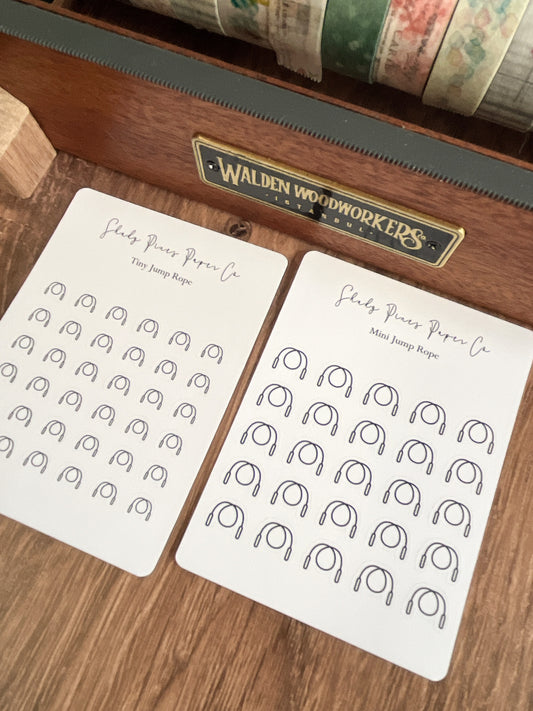 WALDEN WOODWORKERS Co
ISTANBUL
Shady Pines Paper Co
Tiny Jump Rope
Shady Pines Paper Co
Mini Jump Rope